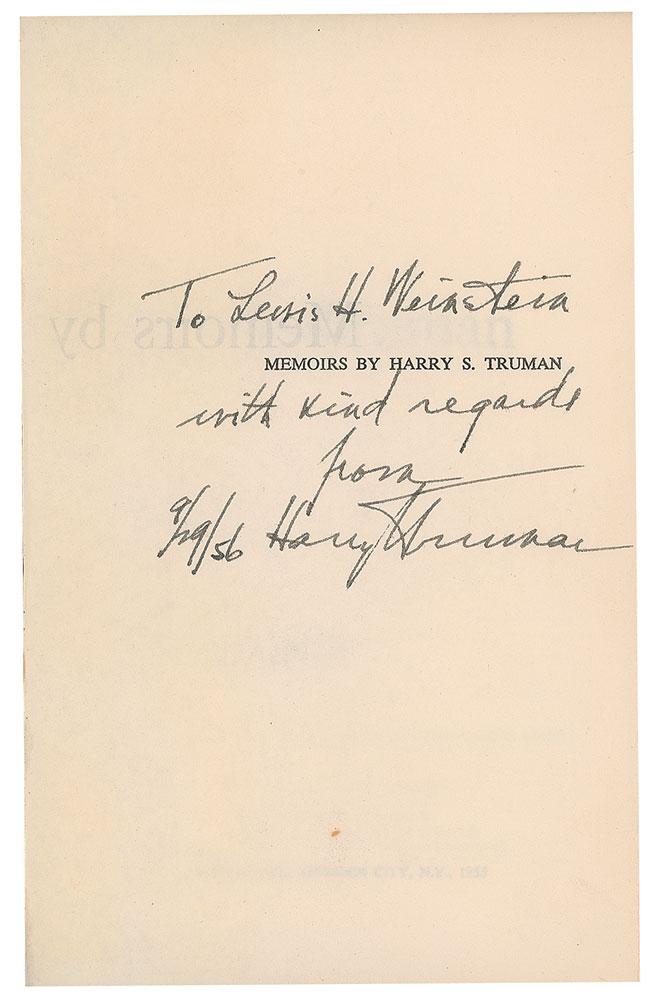 To Lewis H. Weinstein
MEMOIRS BY HARRY S. TRUMAN
with kind regards
from
9/29/56 Harry S Truman
Memoirs by
GARDEN CITY, N.Y., 1955